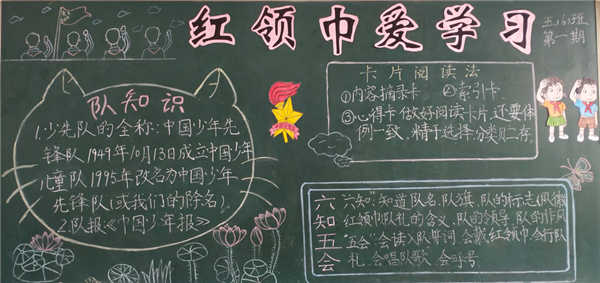 红领巾爱学习
五(6)班
第一期
队知识
1.少先队的全称:中国少年先
锋队1949年10月13日成立中国少年
儿童队1995年改名为中国少年
先锋队(或我们的队名)
2.队报:《中国少年报》
卡片阅读法
①内容摘录卡 ②索引卡
③心得卡 做好阅读卡片,还要体
例一致,精卡选择,分类贮存.
六知五会
"六知":知道队名、队旗、队的标志(队徽
红领巾队礼的含义、队的领导、队的作风
五会:会读入队誓词、会戴红领巾、会行队
礼、会唱队歌、会呼号.